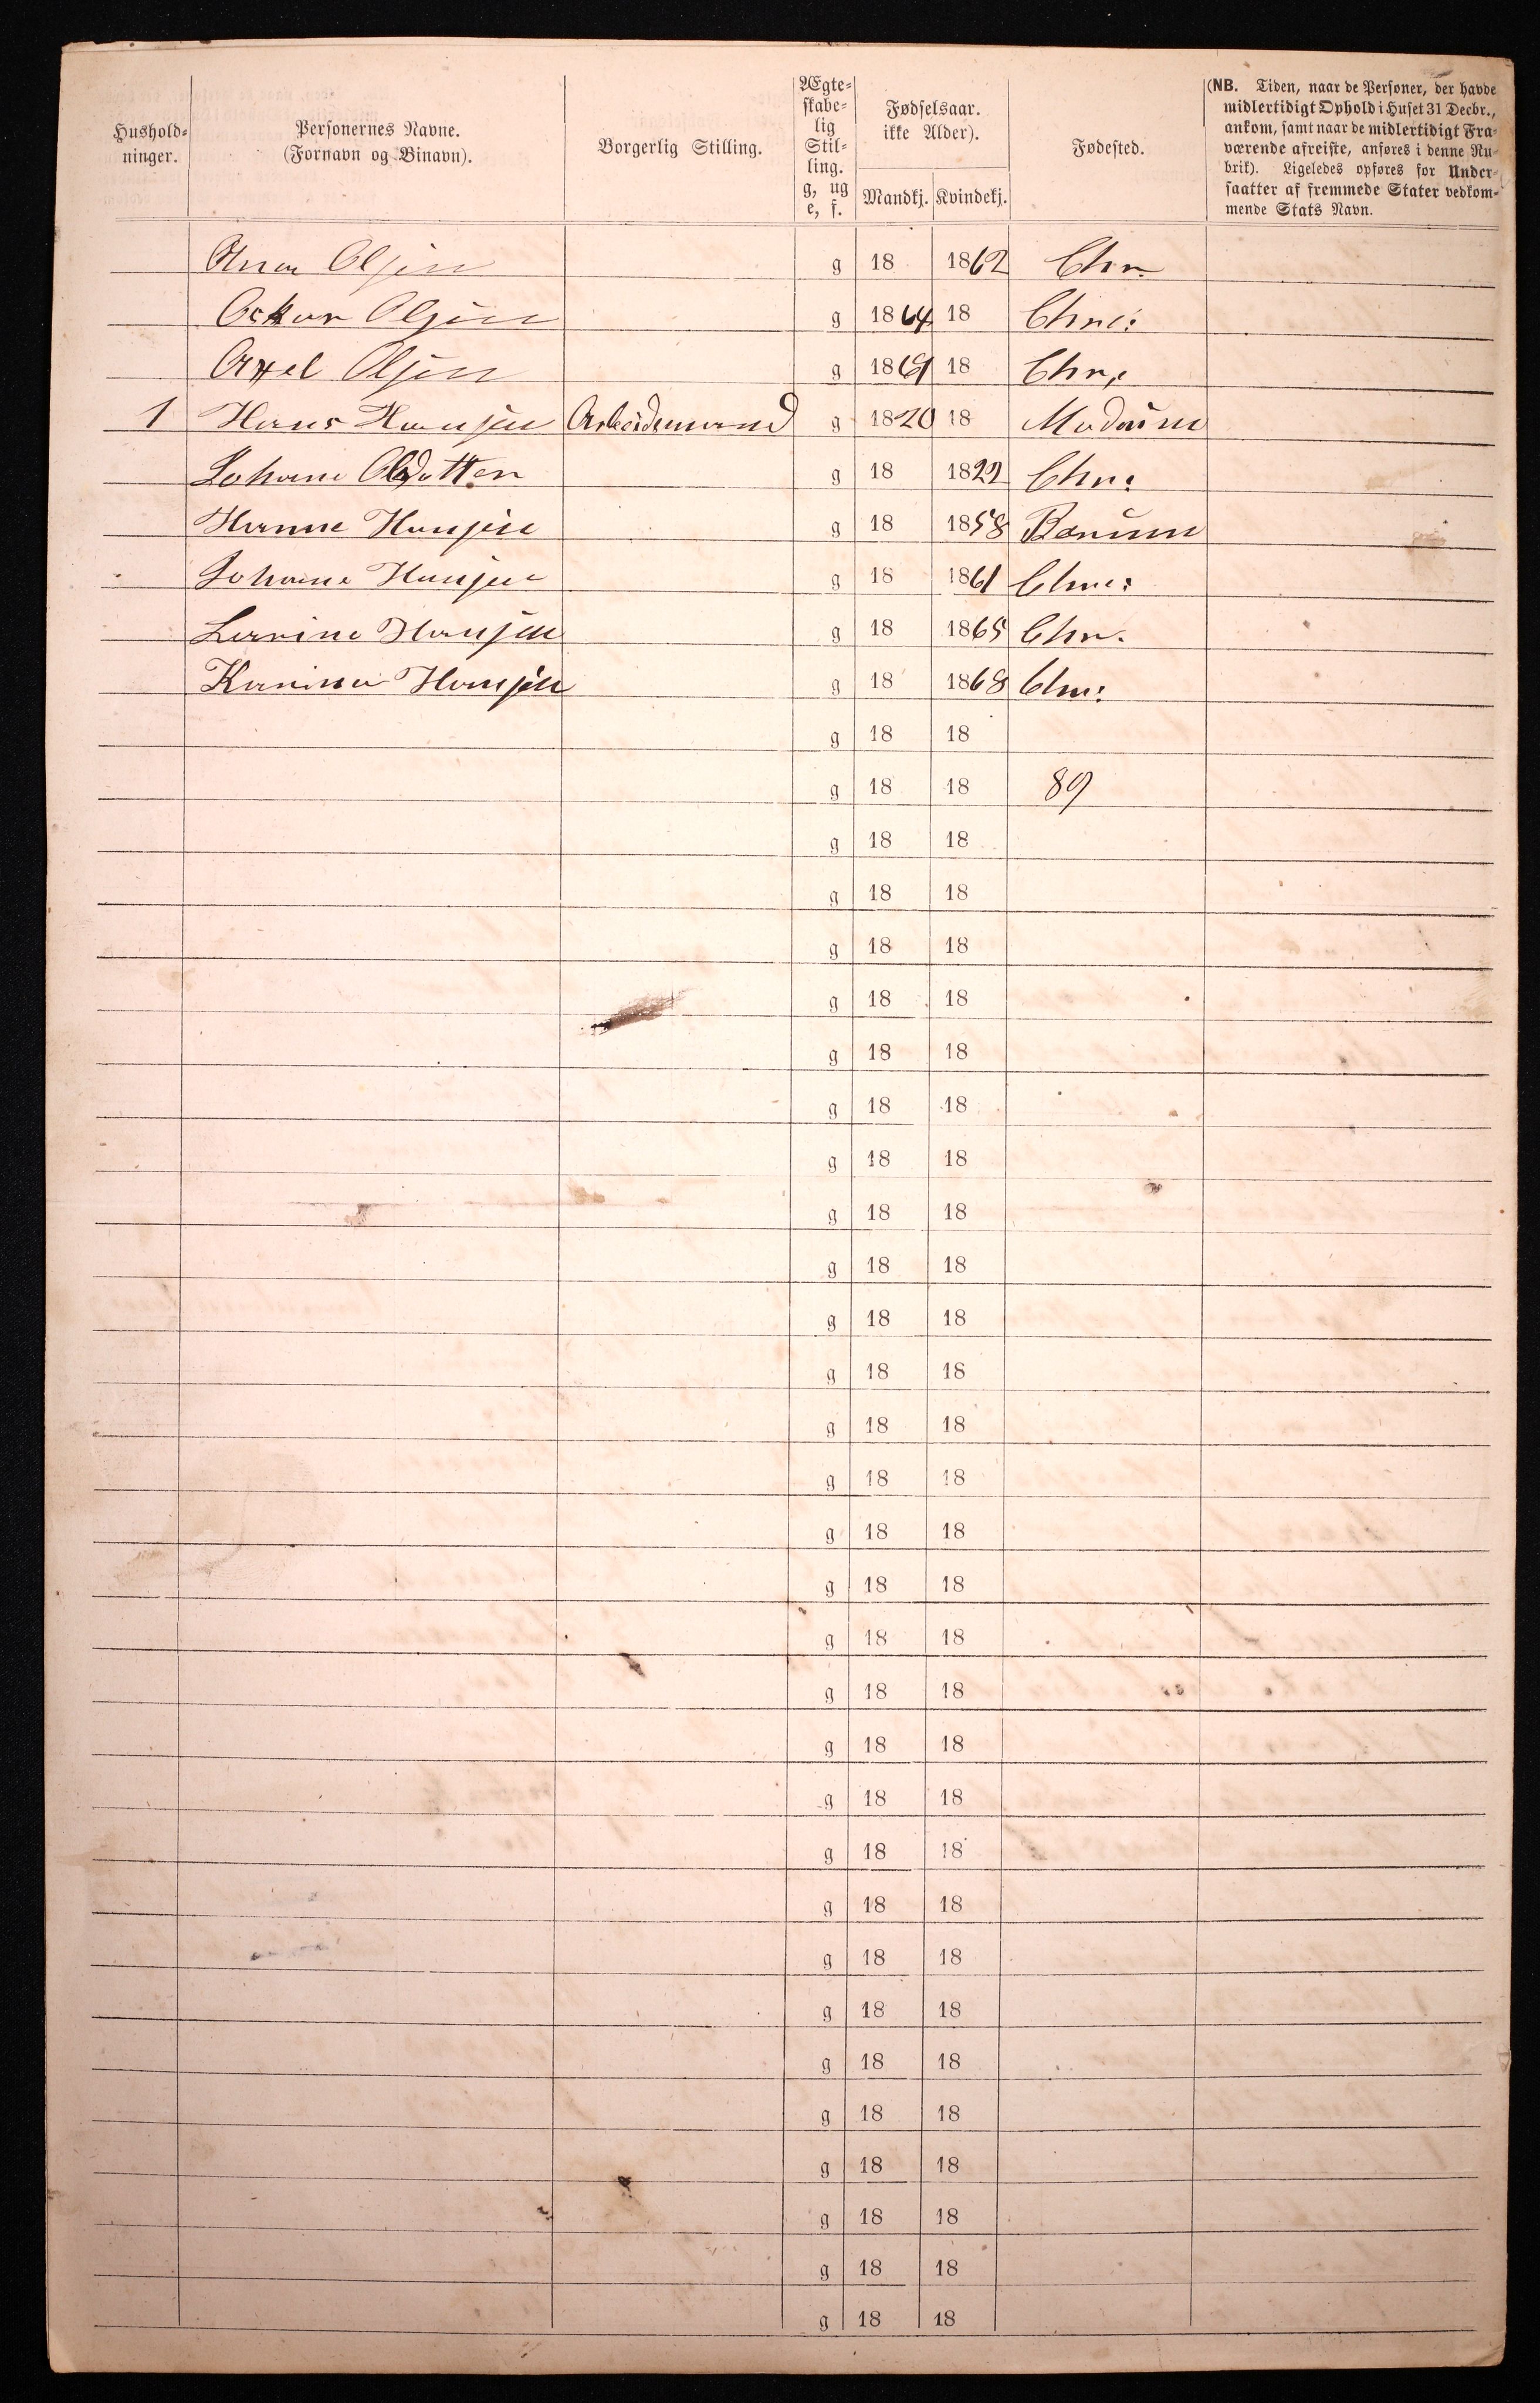 Hushold-
ninger.
Personernes Navne.
(Fornavn og Binavn).
Borgerlig Stilling.
Ægte-
skabe-
lig
Stil-
ling.
g, ug
e, f.
Fødselsaar.
ikke Alder).
Mandkj. Kvindekj.
Fødested.
(NB. Tiden, naar de Personer, der havde
midlertidigt Ophold i Huset 31 Decbr.,
ankom, samt naar de midlertidigt Fra-
værende afreiste, anføres i denne Ru-
brik). Ligeledes opføres for Under-
saatter af fremmede Stater vedkom-
mende Stats Navn.
Anna Olsen g 18 1862 Chr.
Oskar Olsen g 1864 18 Chr:
Axel Olsen g 18 18 Chr,
1 Hans Hansen Arbeidsmand g 1820 18 Modum
Johane Olsdatter g 18 1822 Chr:
Hanne Hansen g 18 1858 Bærum
Johane Hansen g 18 1861 Chr:
Lavine Hansen g 18 1865 Chr.
Karina Hansen g 18 1868 Chr:
g 18 18
g 18 18 89
g 18 18
g 18 18
g 18 18
g 18 18
g 18 18
g 18 18
g 18 18
g 18 18
g 18 18
g 18 18
g 18 18
g 18 18
g 18 18
g 18 18
g 18 18
g 18 18
g 18 18
g 18 18
g 18 18
g 18 18
g 18 18
g 18 18
g 18 18
g 18 18
g 18 18
g 18 18
g 18 18
g 18 18
g 18 18